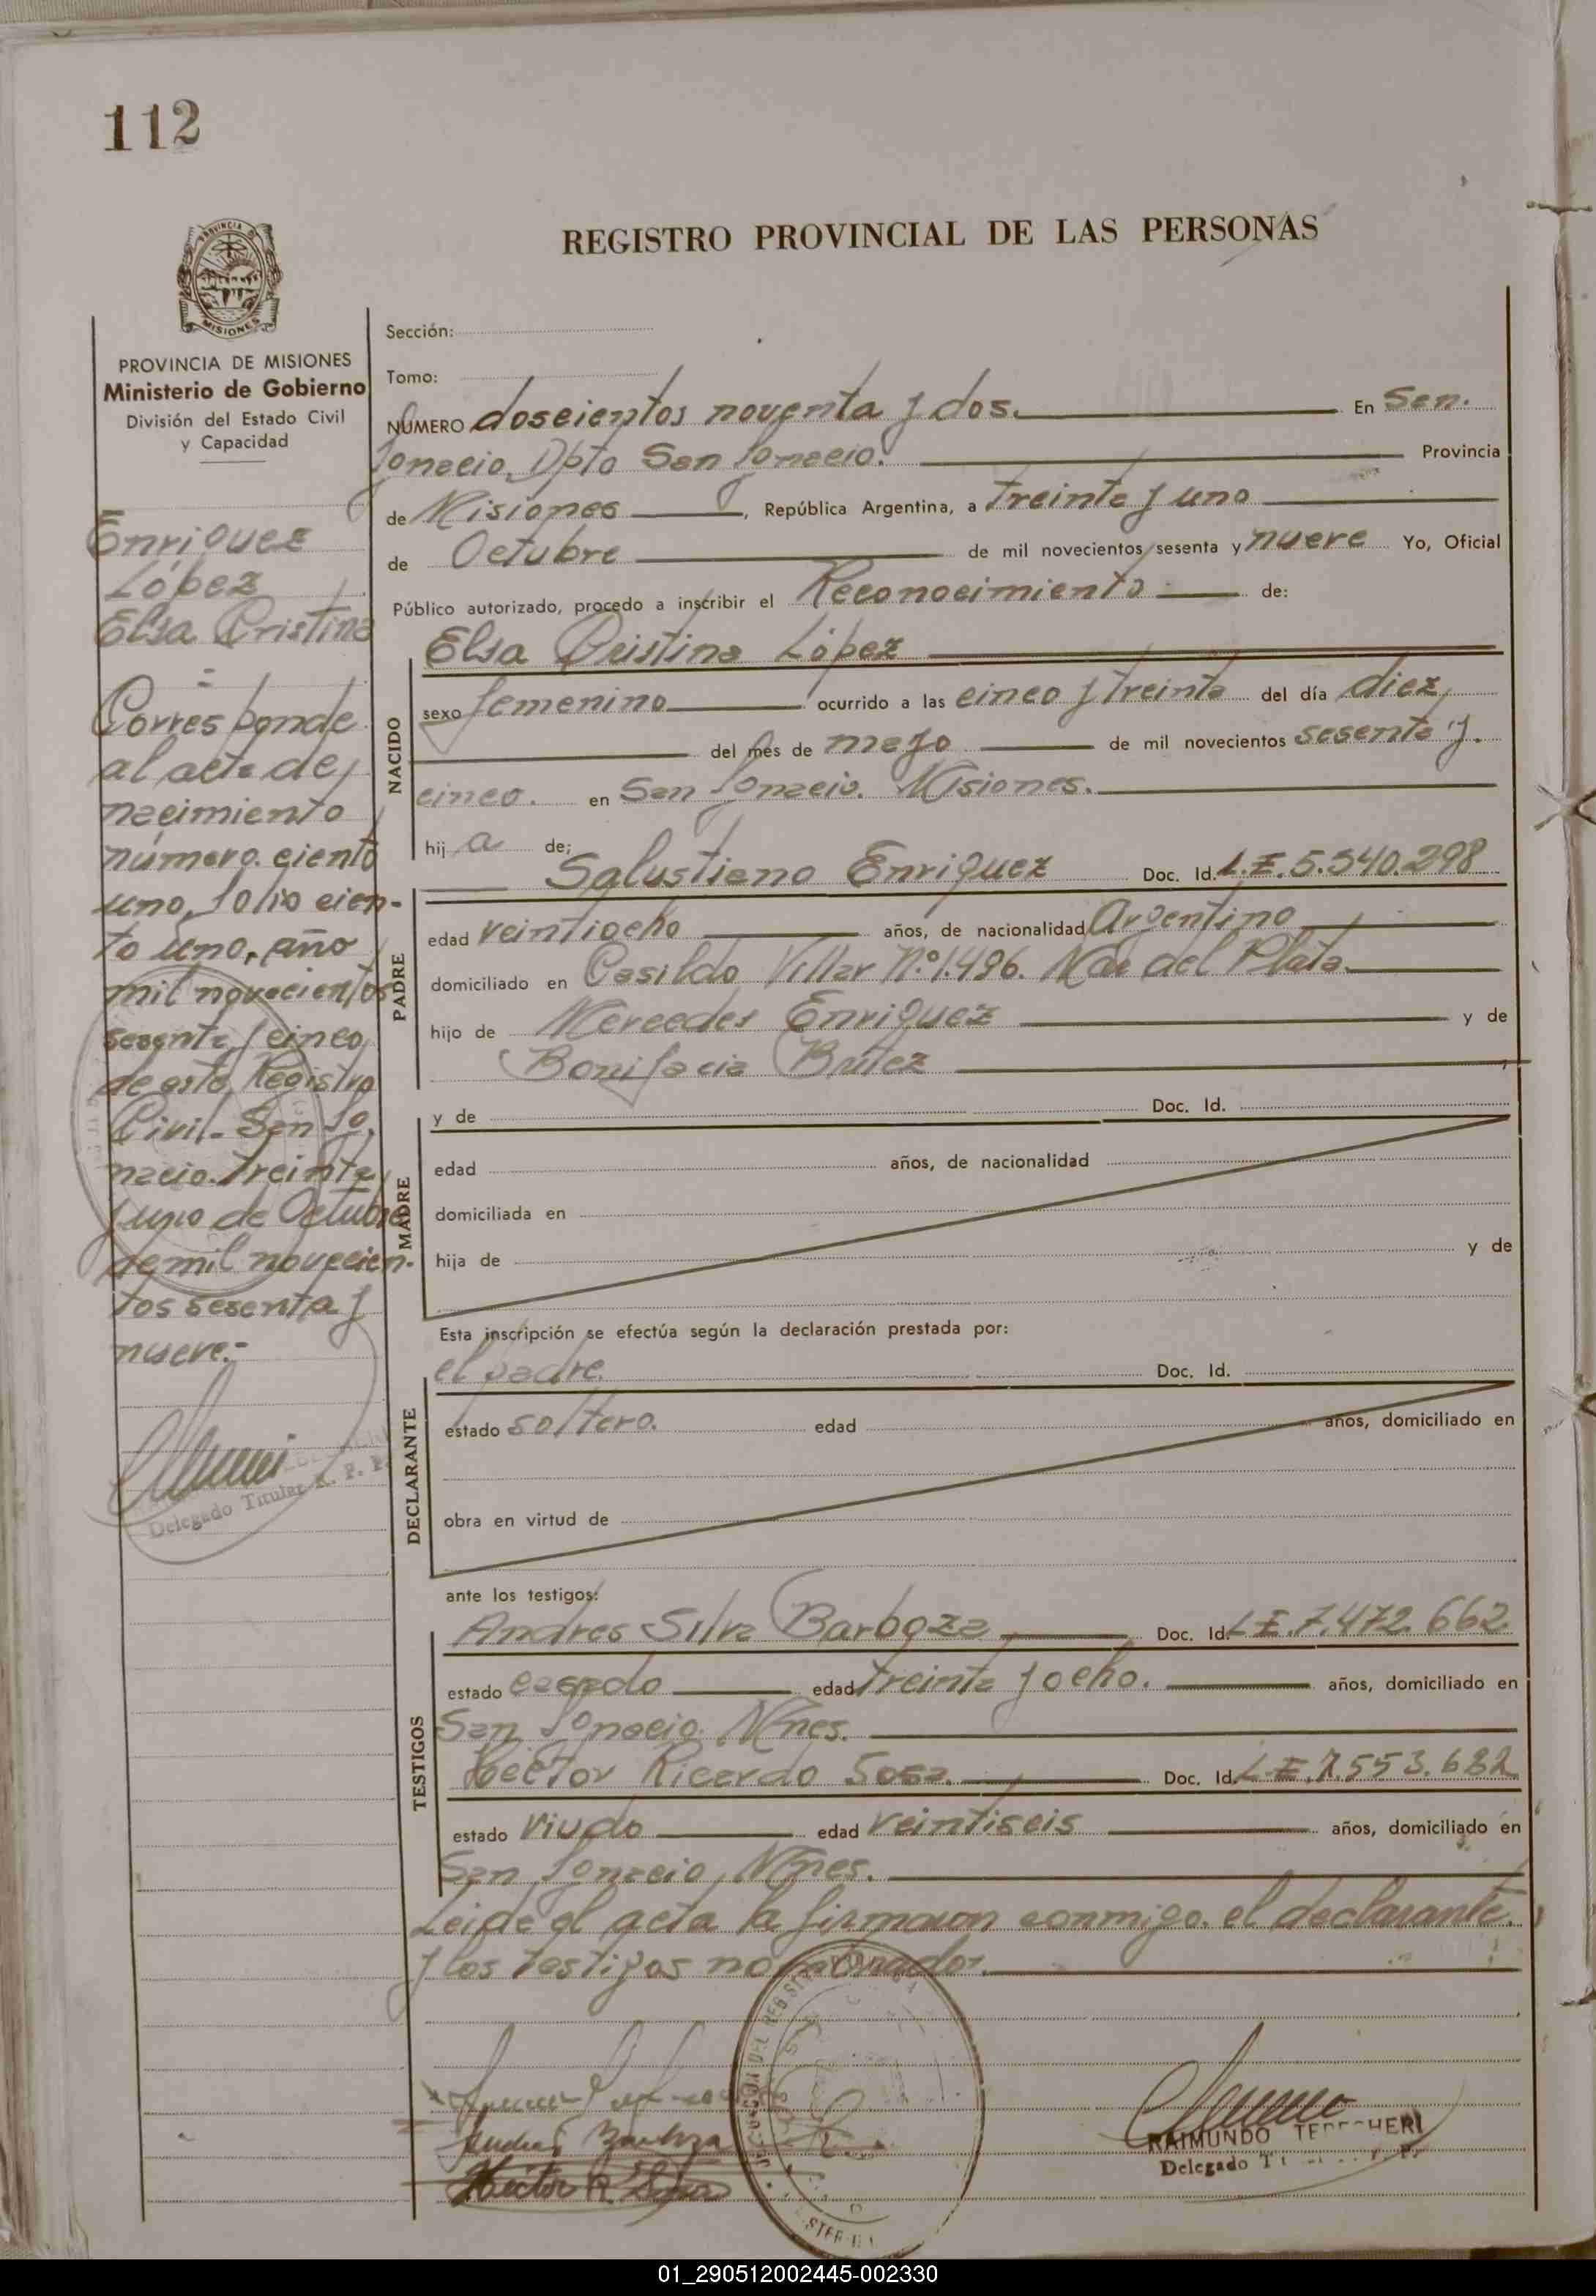 112
PROVINCIA DE
MISIONES
REGISTRO PROVINCIAL DE LAS PERSONAS
PROVINCIA DE MISIONES
Ministerio de Gobierno
División del Estado Civil
y Capacidad
Enriquez
López
Elsa Cristina
=
Corresponde
al acta de
nacimiento
número ciento
uno, folio cien-
to uno, año
mil novecientos
sesenta y cinco,
de este Registro
Civil.- San Ig.
nacio. treinta
y uno de Octubre
de mil novecien-
tos sesenta y
nueve.-
Delegado Titular R. P. P.
Sección:
Tomo:
NÚMERO doscientos noventa y dos. En San.
Ignacio, Dpto San Ignacio. Provincia
de Misiones, República Argentina, a treinta y uno
de Octubre de mil novecientos sesenta y nueve Yo, Oficial
Público autorizado, procedo a inscribir el Reconocimiento de:
Elsa Cristina López
NACIDO
sexo femenino ocurrido a las cinco y treinta del día diez
del mes de mayo de mil novecientos sesenta y.
cinco. en San Ignacio. Misiones.
hij a de;
Salustiano Enriquez Doc. Id. L.E. 5.540.298
PADRE
edad veintiocho años, de nacionalidad Argentino
domiciliado en Casildo Villar N.º 1.496. Mar del Plata.
hijo de Mercedes Enriquez y de
Bonifacia Brítez
MADRE
y de Doc. Id.
edad años, de nacionalidad
domiciliada en
hija de y de
Esta inscripción se efectúa según la declaración prestada por:
el padre. Doc. Id.
DECLARANTE
estado soltero. edad años, domiciliado en
obra en virtud de
ante los testigos:
Andres Silva Barboza Doc. Id. L.E. 7.472.662
TESTIGOS
estado casado edad treinta y ocho. años, domiciliado en
San Ignacio. Mnes.
Héctor Ricardo Sosa. Doc. Id. L.E. 7.553.632
estado viudo edad veintiseis años, domiciliado en
San Ignacio, Mnes.
Leida el acta la firmaron conmigo. el declarante.
y los testigos nombrados.
Andres Barboza
Héctor R. Sosa
RAIMUNDO
Delegado
01_290512002445-002330